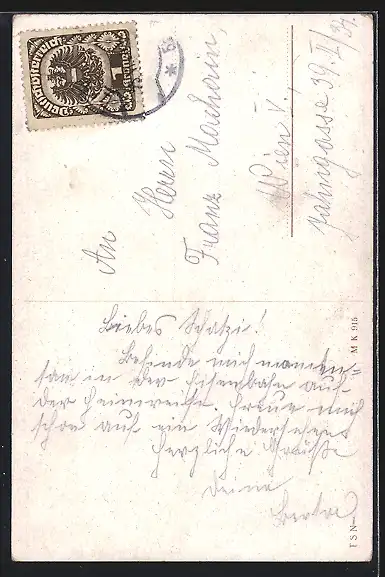 Deutschösterreich
1
An
Herrn
Franz Machorin,
Wien V.
Jahngasse 39. II/31.
Liebes Schatzi!
Befinde mich momen=
tan in der Eisenbahn auf
der Heimreise. Freue mich
schon auf ein Wiedersehen.
Herzliche Grüße
Deine
Berta
TSN
M K 915